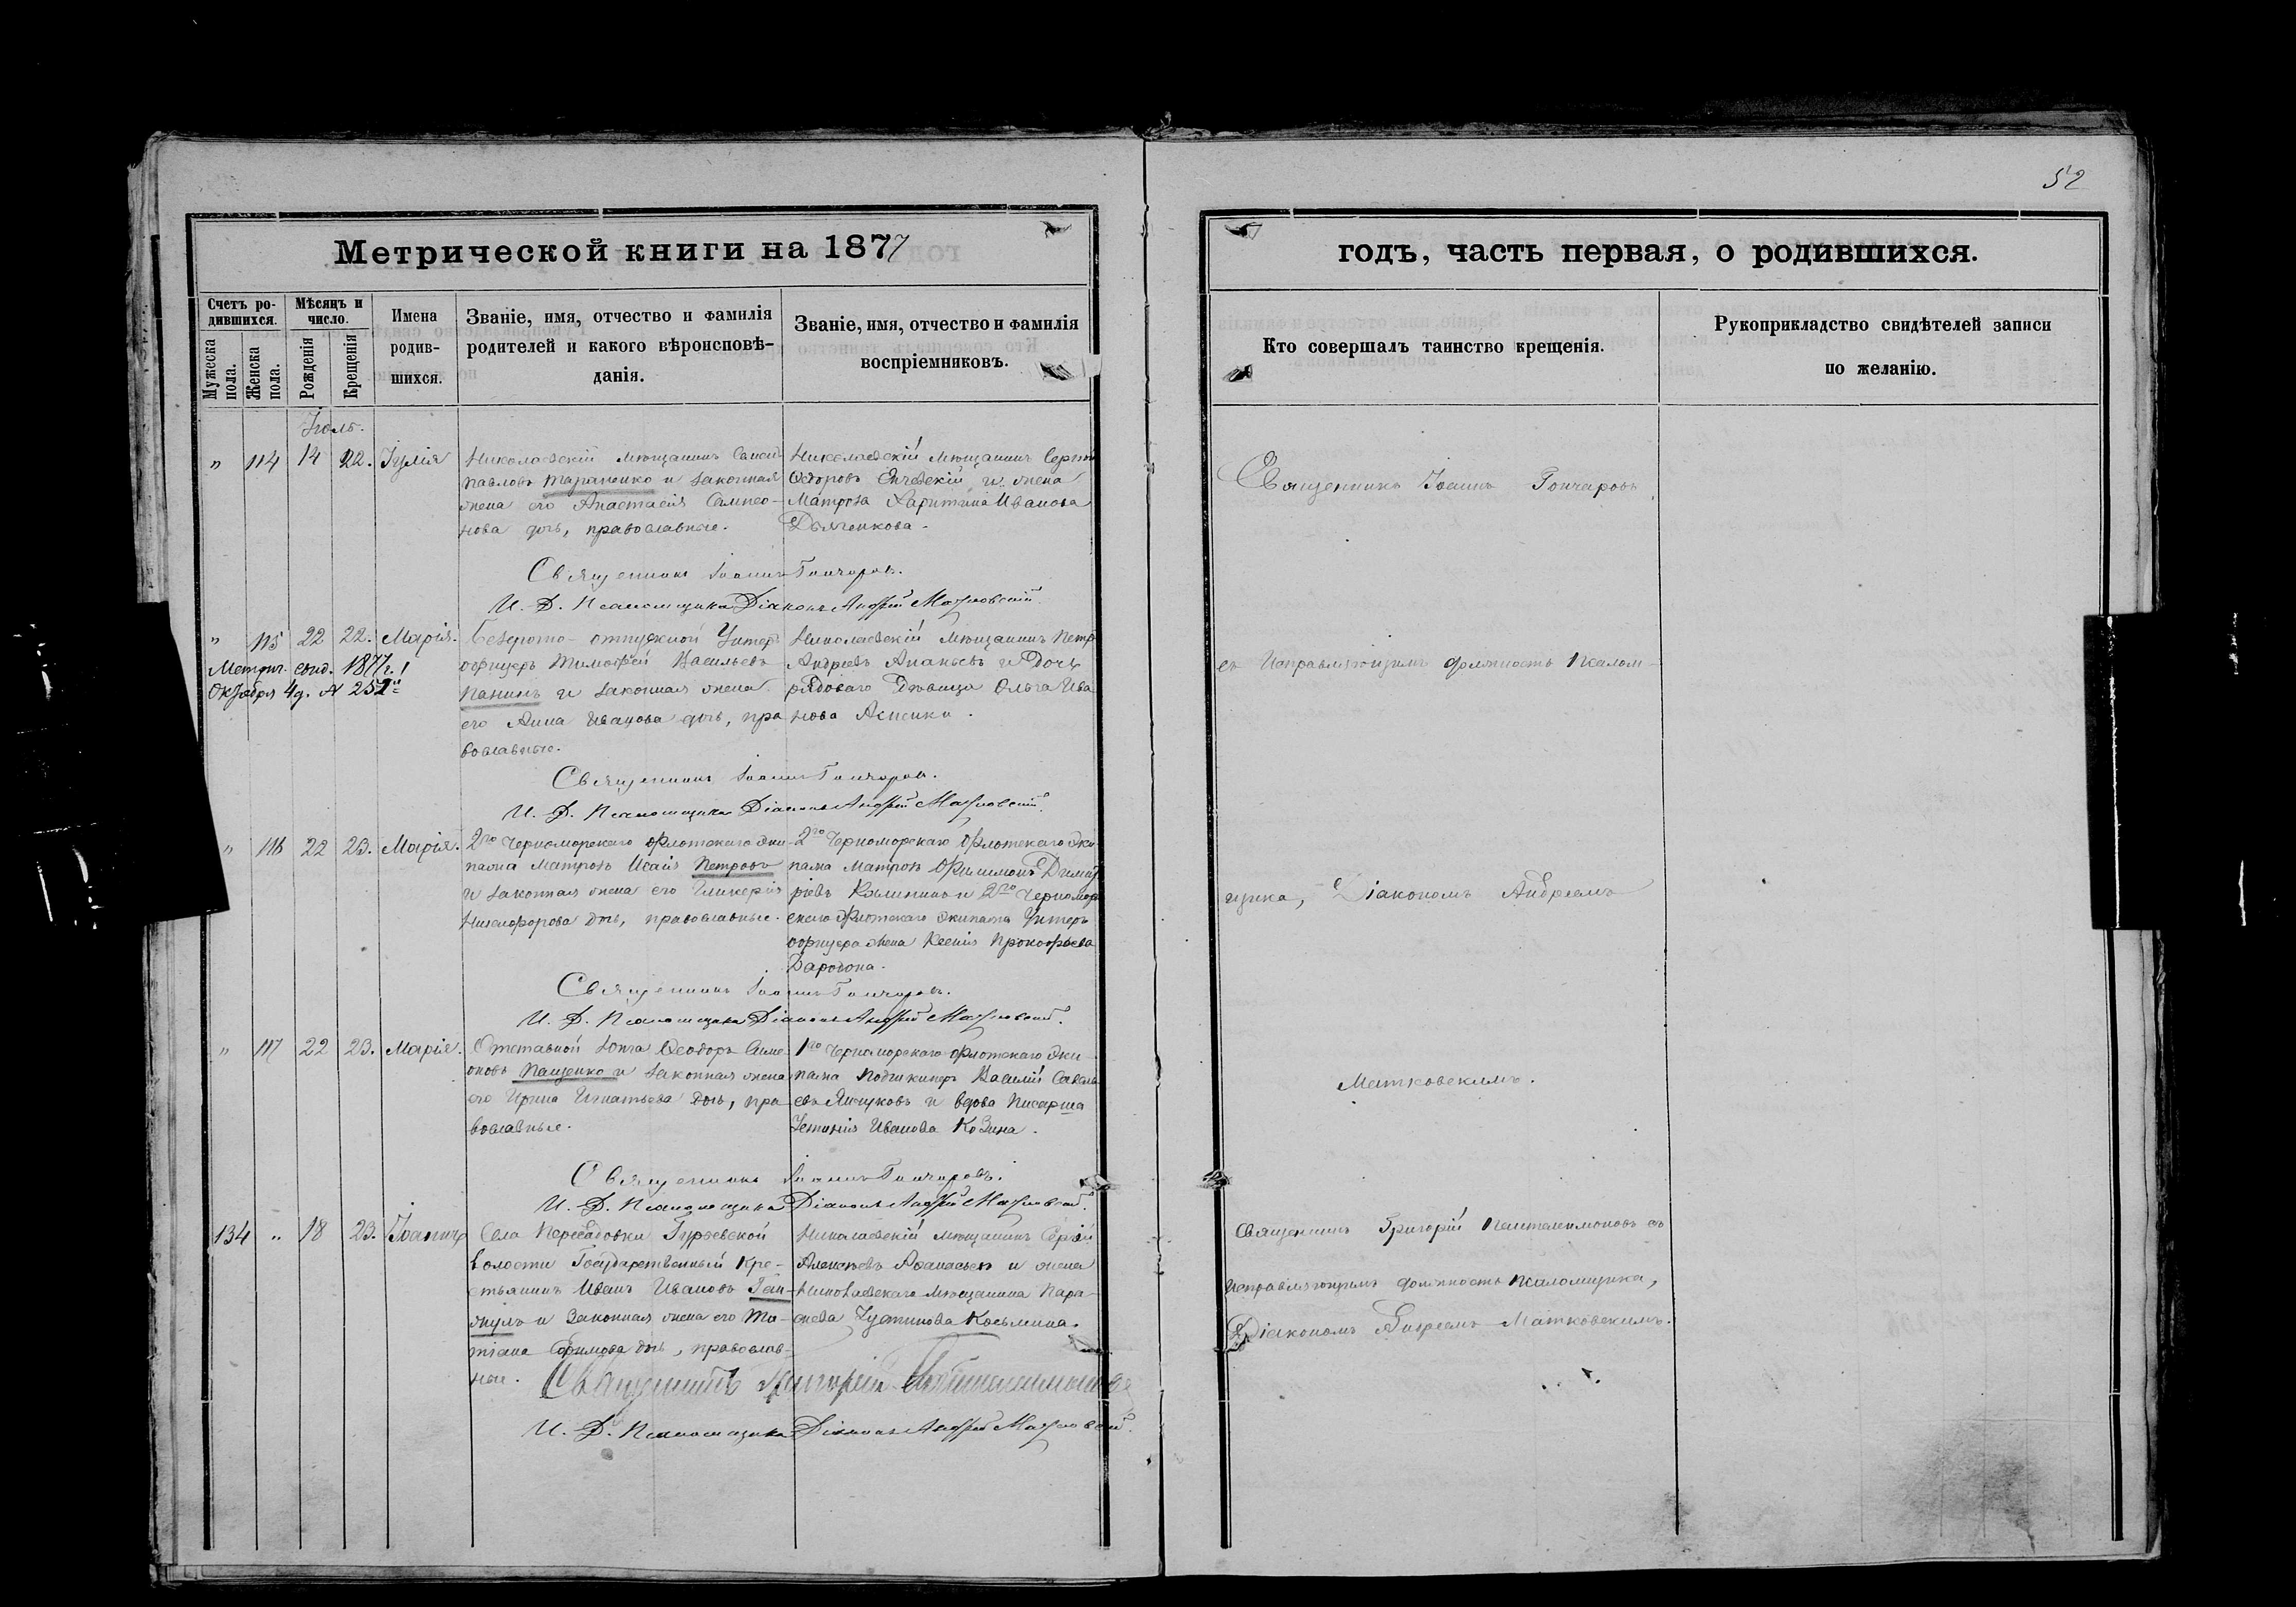 52
Метрической книги на 1877
годъ, часть первая, о родившихся.
Счетъ ро-
дившихся.
Мѣсяцъ и
число.
Мужеска
пола.
Женска
пола.
Рожденія
Крещенія
Имена
родив-
шихся.
Званіе, имя, отчество и фамилія
родителей и какого вѣроисповѣ-
данія.
Званіе, имя, отчество и фамилія
воспріемниковъ.
Кто совершалъ таинство крещенія.
Рукоприкладство свидѣтелей записи
по желанію.
Іюль.
" 114 14 22. Іулія
Николаевскій мѣщанинъ
Павловъ Тараненко и законная
жена его Анастасія
нова дочь, православные.
Николаевскій мѣщанинъ Сергій
Ѳедоровъ и жена
Матроса Харитина Иванова
Дьяченкова.
Священникъ Іоаннъ Гончаровъ
Священникъ Іоаннъ Гончаровъ.
И. Д. Псаломщика Діаконъ Андрей Матковскій.
" 115 22 22. Марія.
Метрич. 1877 г.
Октября 4 д. № 252
Безсрочно-отпускной Унтеръ
офицеръ Тимофей Васильевъ
Панинъ и законная жена
его Анна Иванова дочь, пра
вославные.
Николаевскій мѣщанинъ Петръ
Андреевъ Ананьевъ и Дочь
рядоваго Дѣвица Ольга Ива
нова
съ Исправляющимъ должность Псалом-
Священникъ Іоаннъ Гончаровъ.
И. Д. Псаломщика Діаконъ Андрей Матковскій.
" 116 22 23. Марія.
2го Черноморскаго Флотскаго Эки-
пажа Матросъ Исаія Петровъ
и законная жена его Гликерія
Никифорова дочь, православные.
2го Черноморскаго Флотскаго Эки
пажа Матросъ Филимонъ Димит
ріевъ и 2го Черномор
скаго Флотскаго Экипажа Унтеръ
офицера жена Ксенія Прокофьева
щика, Діакономъ Андреемъ
Священникъ Іоаннъ Гончаровъ.
И. Д. Псаломщика Діаконъ Андрей Матковскій.
" 117 22 23. Марія.
Отставной Ѳеодоръ Симе-
оновъ Пащенко и законная жена
его Ирина Игнатьева дочь, пра
вославные.
1го Черноморскаго флотскаго Эки-
пажа Подшкиперъ Василій Савель
евъ и вдова Писарша
Устинія Иванова Козина.
Матковскимъ.
Священникъ Іоаннъ Гончаровъ.
И. Д. Псаломщика Діаконъ Андрей Матковскій.
134 " 18 23. Іоаннъ
Села Пересадовки Гурьевской
волости Государственный Кре-
стьянинъ Иванъ Ивановъ Ган-
жулъ и Законная жена его Та-
тіана Ефимова дочь, православ-
ные.
Николаевскій мѣщанинъ Сергій
Алексѣевъ Аѳанасьевъ и жена
Николаевскаго мѣщанина Пара-
скева Устинова Косьмина.
Священникъ Григорій Пантелимоновъ съ
Исправляющимъ должность Псаломщика,
Діакономъ Андреемъ Матковскимъ.
Священникъ Григорій Пантелимоновъ
И. Д. Псаломщика Діаконъ Андрей Матковскій.